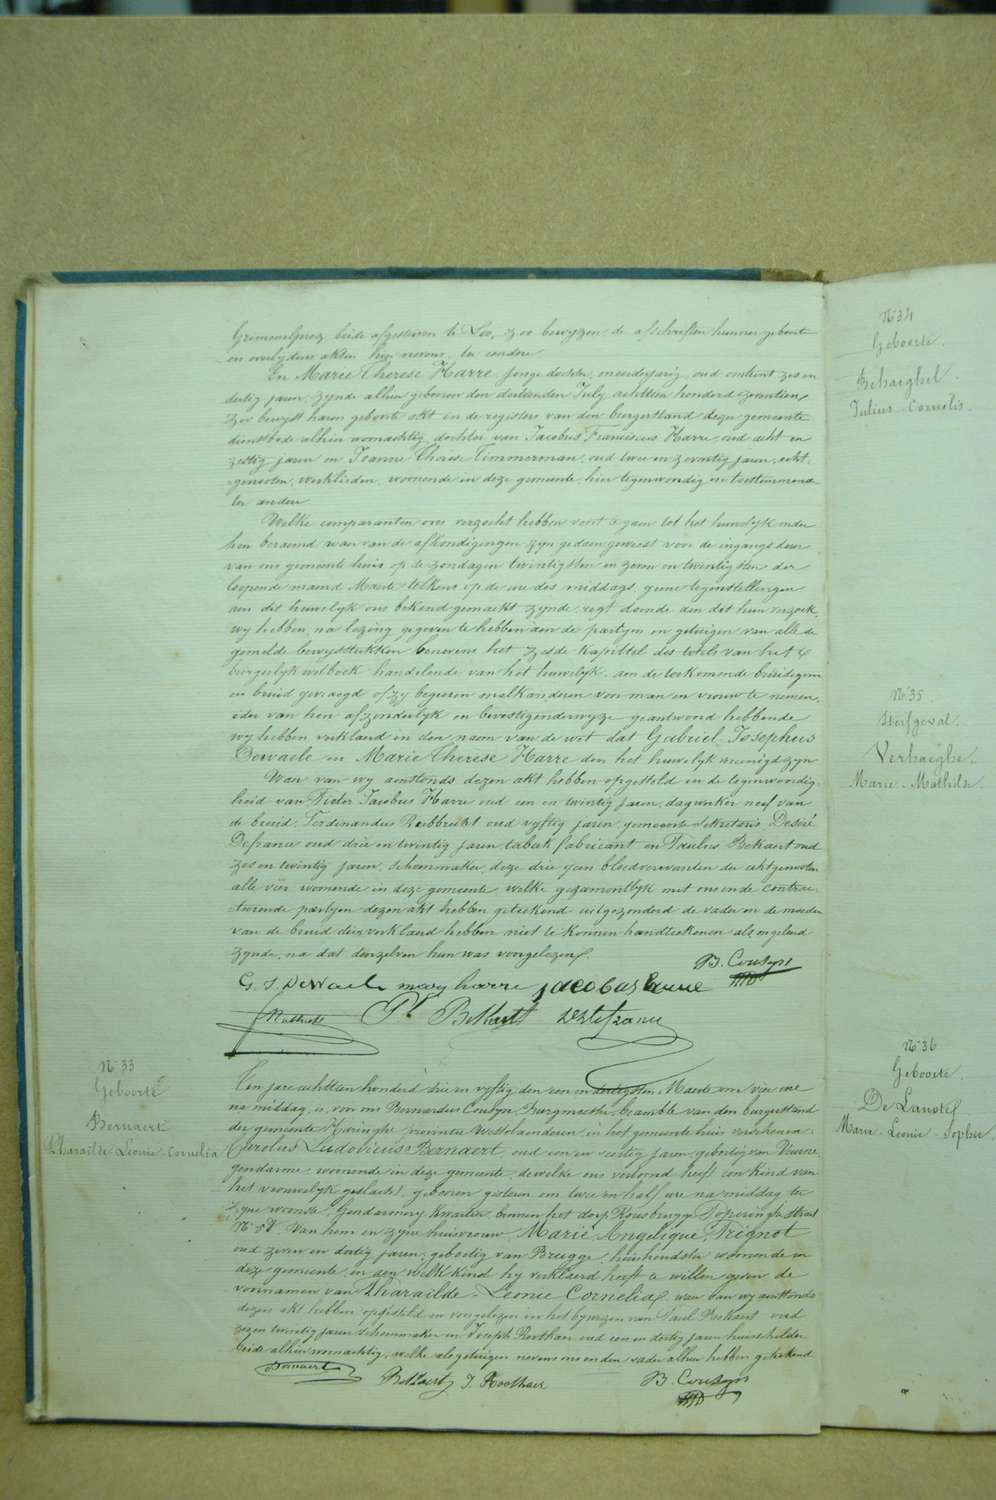 beide afgestorven te Loo, zoo bewyzen de afschriften hunner geboorte
en overlydens akten hier nevens. ter eendere
En Marie Therese Harre jonge dochter, meerderjarig, oud omtrent zes en
dertig jaren, zynde alhier geboren den dertienden July achttien honderd zeventien,
zoo bewyst haren geboorte akt in de registers van den burgerstand dezer gemeente
dienstbode alhier woonachtig, dochter van Jacobus Franciscus Harre, oud acht en
zestig jaren en Joanna Therese Timmerman, oud twee en zeventig jaren, echt-
genooten, werklieden, woonende in deze gemeente, hier tegenwoordig en toestemmende
ter andere
Welke comparanten ons verzocht hebben voort te gaen tot het huwelyk onder
hen beraemd waer van de afkondigingen zyn gedaen geweest voor de ingangs deur
van ons gemeente huis op de zondagen twintigsten en zeven en twintigsten der
loopende maend Maerte telkens op de ure des middags, geene tegenstellingen
aen dit huwelyk ons bekend gemaekt zynde, regt doende aen dat hun verzoek,
wy hebben, na lezing gegeven te hebben aen de partyen en getuigen van alle de
gemelde bewysstukken benevens het zesde kapittel des titels van het
burgerlyk wetboek handelende van het huwelyk, aen de toekomende bruidegom
en bruid gevraegd of zy begeeren malkanderen voor man en vrouw te nemen,
ider van hen afzonderlyk en bevestigenderwyze geantwoord hebbende
wy hebben verklaerd in den naem van de wet dat Gabriel Josephus
Dewaele en Marie Therese Harre door het huwelyk vereenigd zyn
Waer van wy aenstonds dezen akt hebben opgesteld in de tegenwoordig-
heid van Pieter Jacobus Harre oud een en twintig jaren, dagwerker neef van
de bruid, Ferdinandus Roebbrecht oud vyftig jaren, gemeente sekretaris, Desiré
Defrance oud drie en twintig jaren tabak fabricant en Paulus Bekaert oud
zes en twintig jaren, schoenmaker, deze drie geen bloedverwanten der echtgenooten
alle vier woonende in deze gemeente, welke gezamentlyk met ons en de contrac-
teerende partyen dezen akt hebben geteekend uitgezonderd de vader en de moeder
van de bruid die verklaerd hebben niet te konnen handteekenen als ongeleerd
zynde, na dat denzelven hun was voorgelezen.
B. Cousyn
G. J. DeWaele mary harre jacobus harre
P. Bekaert D. Defrance
N° 33
Geboorte
Bernaert
Pharailde-Leonie-Cornelia
Ten jare achttien honderd drie en vyftig den een en dertigsten Maerte om vier ure
na middag, is voor ons Bernardus Cousyn Burgmeester, beambte van den burgerstand
der gemeente Haringhe provintie Westvlaenderen in het gemeente huis verschenen
Carolus Ludovicus Bernaert, oud een en veertig jaren geboortig van Veurne,
gendarme, woonende in deze gemeente, dewelke ons vertoond heeft een kind van
het vrouwelyk geslacht, geboren gisteren om twee en half ure na middag ter
zyne woonste, Gendarmery kwartier binnen het dorp Rousbrugge Poperinghe straet
N° 57. Van hem en zyne huisvrouw Marie Angelique Frignot
oud zeven en dertig jaren, geboortig van Brugge, huishoudster woonende in
deze gemeente, en aen welk kind hy verklaerd heeft te willen geven de
voornamen van Pharailde-Leonie Cornelia, waer van wy aenstonds
dezen akt hebben opgesteld en voorgelezen in het bywezen van Paul Bekaert oud
zes en twintig jaren schoenmaker en Joseph Roothaer oud een en dertig jaren huisschilder
beide alhier woonachtig, welke als getuigen nevens ons en den vader alhier hebben geteekend
Bernaert
Bekaert J. Roothaer B. Cousyn
N° 34
Geboorte.
Behaeghel.
Julius-Cornelis.
N° 35.
Sterfgeval.
Verhaeghe.
Marie-Mathilde.
N° 36
Geboorte.
Marie-Leonie-Sophie.